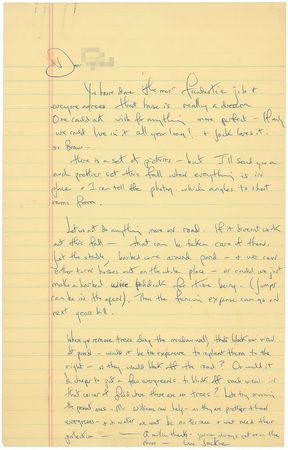 Dear
You have done the most fantastic job &
everyone agrees that house is really a dream
One could not wish for anything more perfect - If only
we could live in it all year long! + Jack loves it.
so Bravo -
There is a set of pictures - but I'll send you a
much prettier set this fall when everything is in
place + I can tell the photog. which angles to shoot
rooms from.
Let us not do anything more on road. If it doesn't work
at this fall - that can be taken care of then.
Let the stable, barbed wire around pond - + we can
either turn horses out on the whole place - or could we just
make a barbed wire paddock for time being - (jumps
can be in the open). Then the fencing expense can go on
next years bill.
When you remove trees along the median wall, that block our view
of pond - would it be too expensive to replant them to the
right - so they would block off the road? Or would it
be cheaper to put a few evergreens to block off road view - in
that corner of field where there are no trees? Lets try moving
the present ones - Mr Williams can help - as they are prettier than
evergreens - + in winter we wont be on terrace + wont need their
protection - A million thanks - you're always
Love Jackie